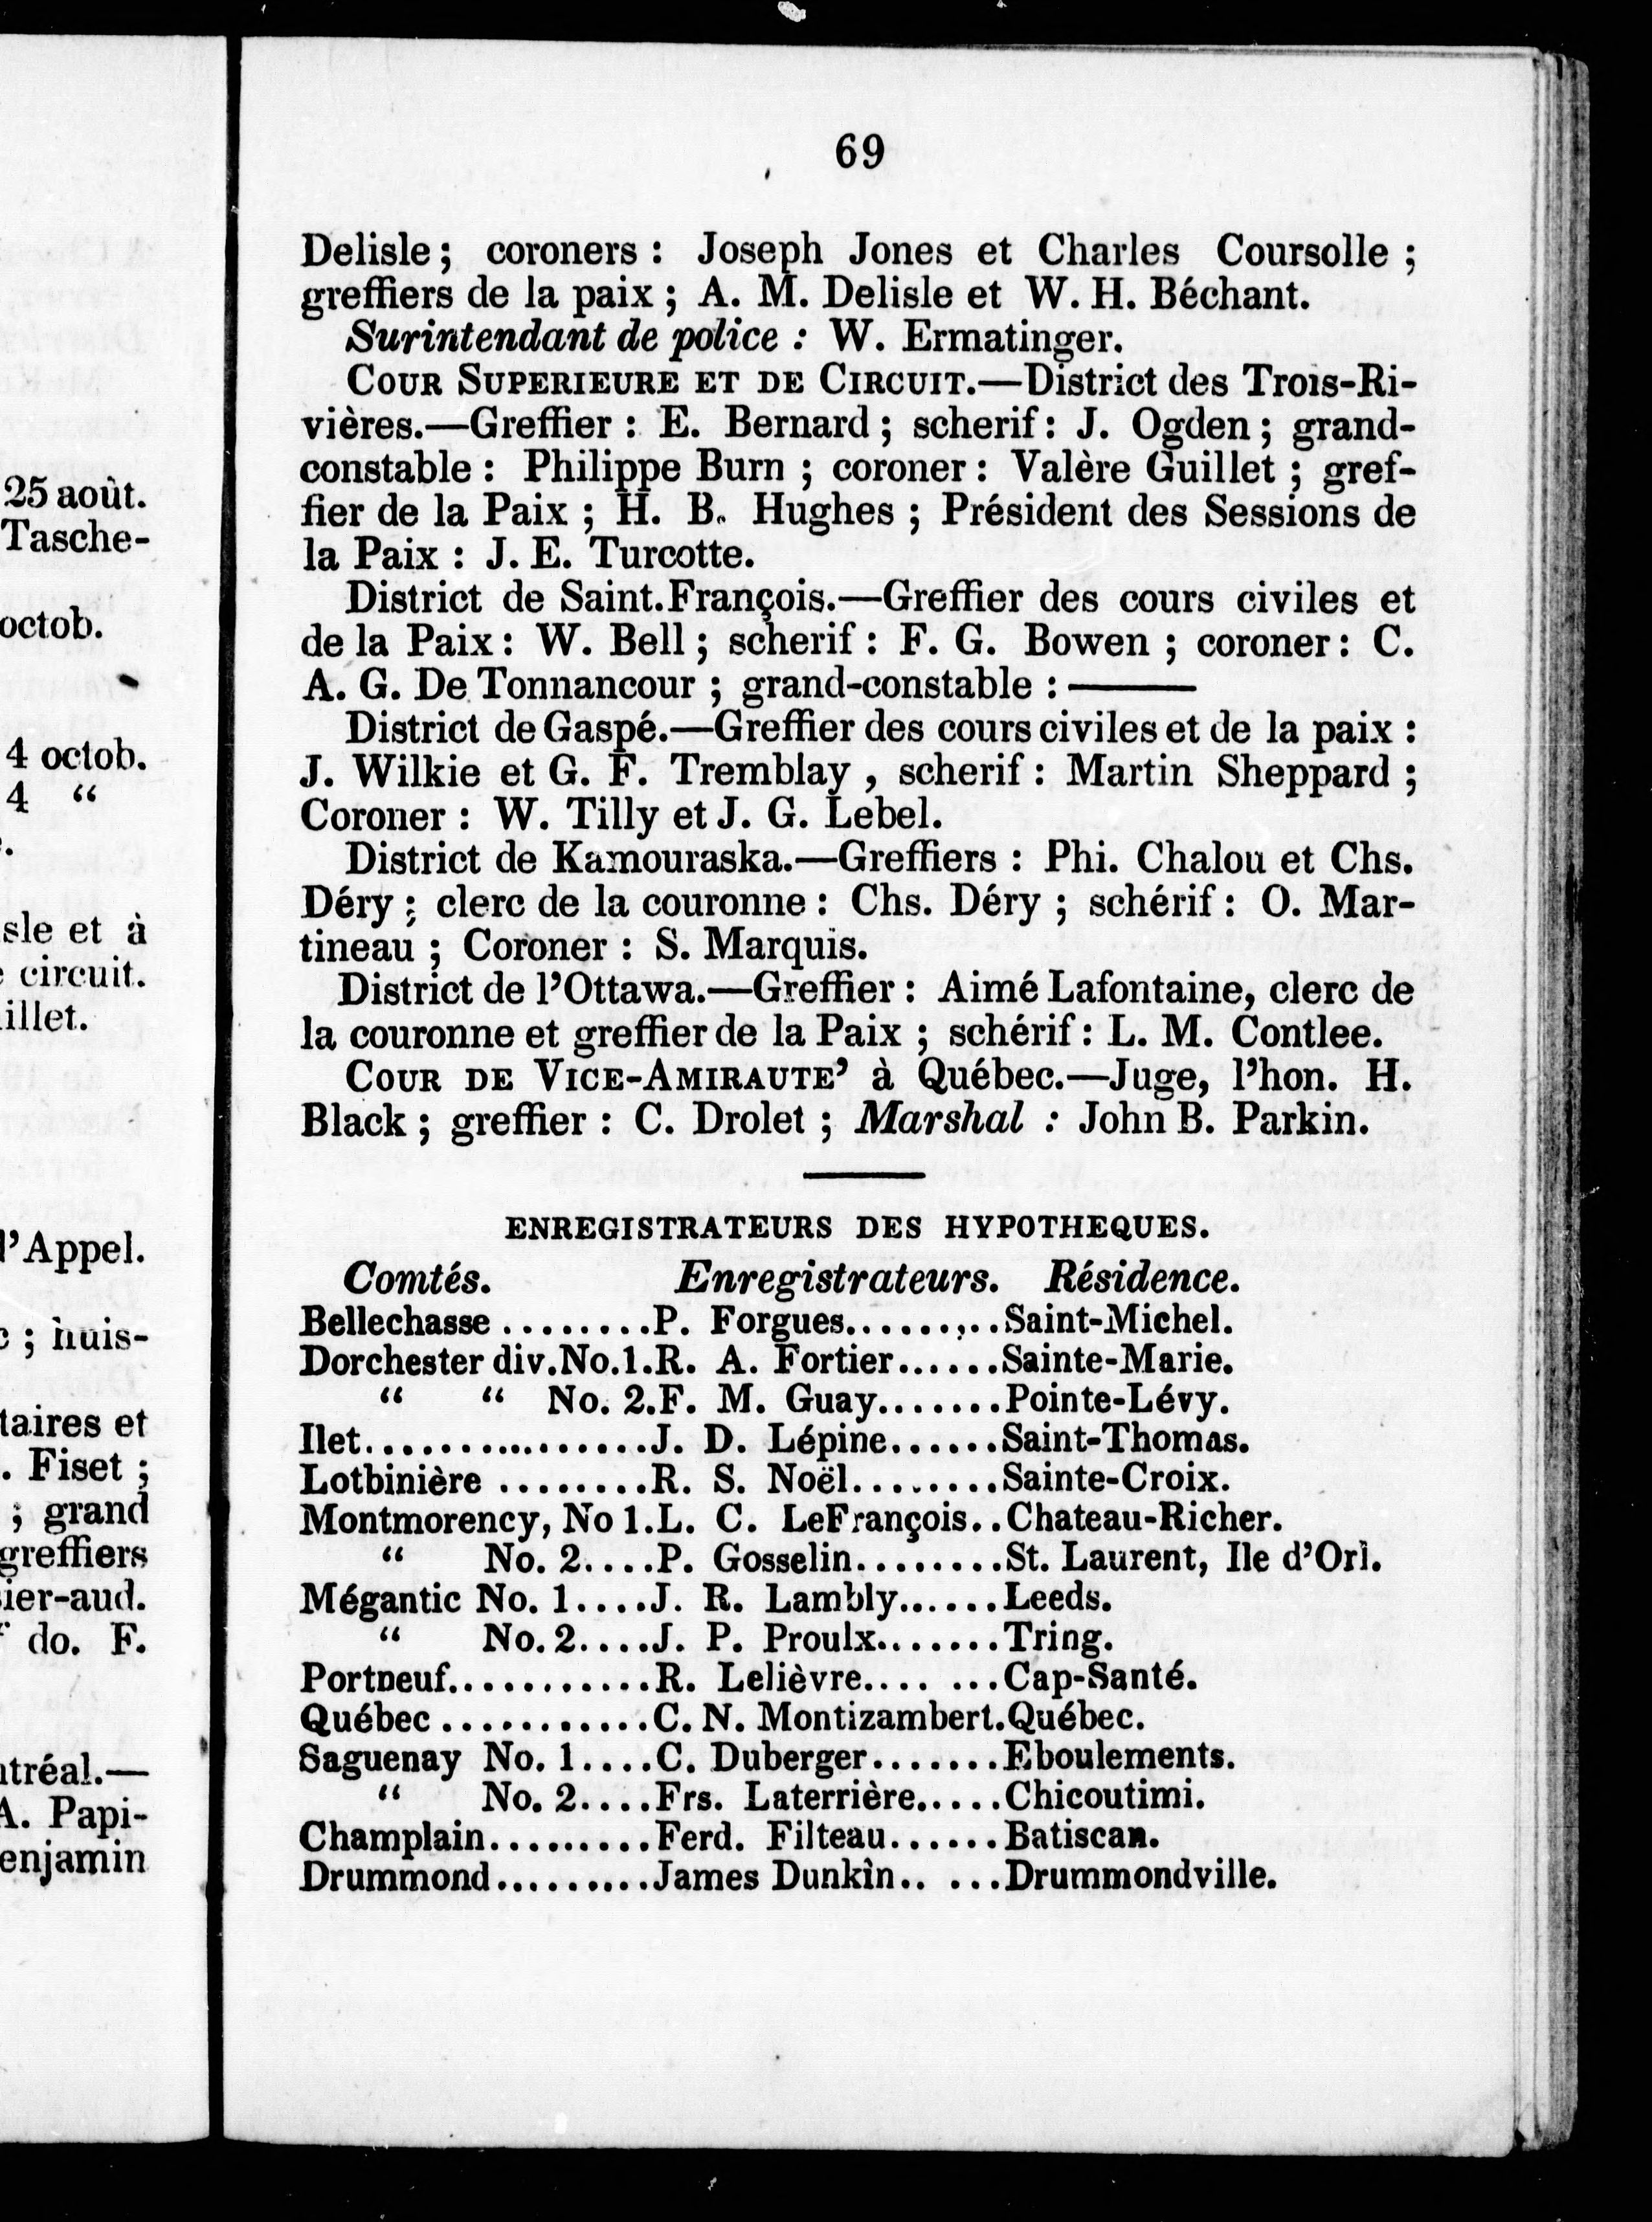 25 août.
Tasche-
octob.
4 octob.
4 "
sle et à
circuit.
illet.
l'Appel.
; huis-
taires et
. Fiset ;
; grand
greffiers
ier-aud.
do. F.
tréal.—
A. Papi-
enjamin
69
Delisle ; coroners : Joseph Jones et Charles Coursolle ;
greffiers de la paix ; A. M. Delisle et W. H. Béchant.
Surintendant de police : W. Ermatinger.
COUR SUPERIEURE ET DE CIRCUIT.—District des Trois-Ri-
vières.—Greffier : E. Bernard ; scherif : J. Ogden ; grand-
constable : Philippe Burn ; coroner : Valère Guillet ; gref-
fier de la Paix ; H. B. Hughes ; Président des Sessions de
la Paix : J. E. Turcotte.
District de Saint.François.—Greffier des cours civiles et
de la Paix : W. Bell ; scherif : F. G. Bowen ; coroner : C.
A. G. De Tonnancour ; grand-constable : ———
District de Gaspé.—Greffier des cours civiles et de la paix :
J. Wilkie et G. F. Tremblay , scherif : Martin Sheppard ;
Coroner : W. Tilly et J. G. Lebel.
District de Kamouraska.—Greffiers : Phi. Chalou et Chs.
Déry ; clerc de la couronne : Chs. Déry ; schérif : O. Mar-
tineau ; Coroner : S. Marquis.
District de l'Ottawa.—Greffier : Aimé Lafontaine, clerc de
la couronne et greffier de la Paix ; schérif : L. M. Contlee.
COUR DE VICE-AMIRAUTE' à Québec.—Juge, l'hon. H.
Black ; greffier : C. Drolet ; Marshal : John B. Parkin.
ENREGISTRATEURS DES HYPOTHEQUES.
Comtés. Enregistrateurs. Résidence.
Bellechasse ........P. Forgues.........Saint-Michel.
Dorchester div.No.1.R. A. Fortier......Sainte-Marie.
" " No. 2.F. M. Guay.......Pointe-Lévy.
Ilet.................J. D. Lépine......Saint-Thomas.
Lotbinière ........R. S. Noël........Sainte-Croix.
Montmorency, No 1.L. C. LeFrançois..Chateau-Richer.
" No. 2....P. Gosselin........St. Laurent, Ile d'Orl.
Mégantic No. 1....J. R. Lambly......Leeds.
" No. 2....J. P. Proulx.......Tring.
Portneuf...........R. Lelièvre.... ...Cap-Santé.
Québec ...........C. N. Montizambert.Québec.
Saguenay No. 1....C. Duberger.......Eboulements.
" No. 2....Frs. Laterrière.....Chicoutimi.
Champlain.........Ferd. Filteau......Batiscan.
Drummond.........James Dunkin.. ...Drummondville.